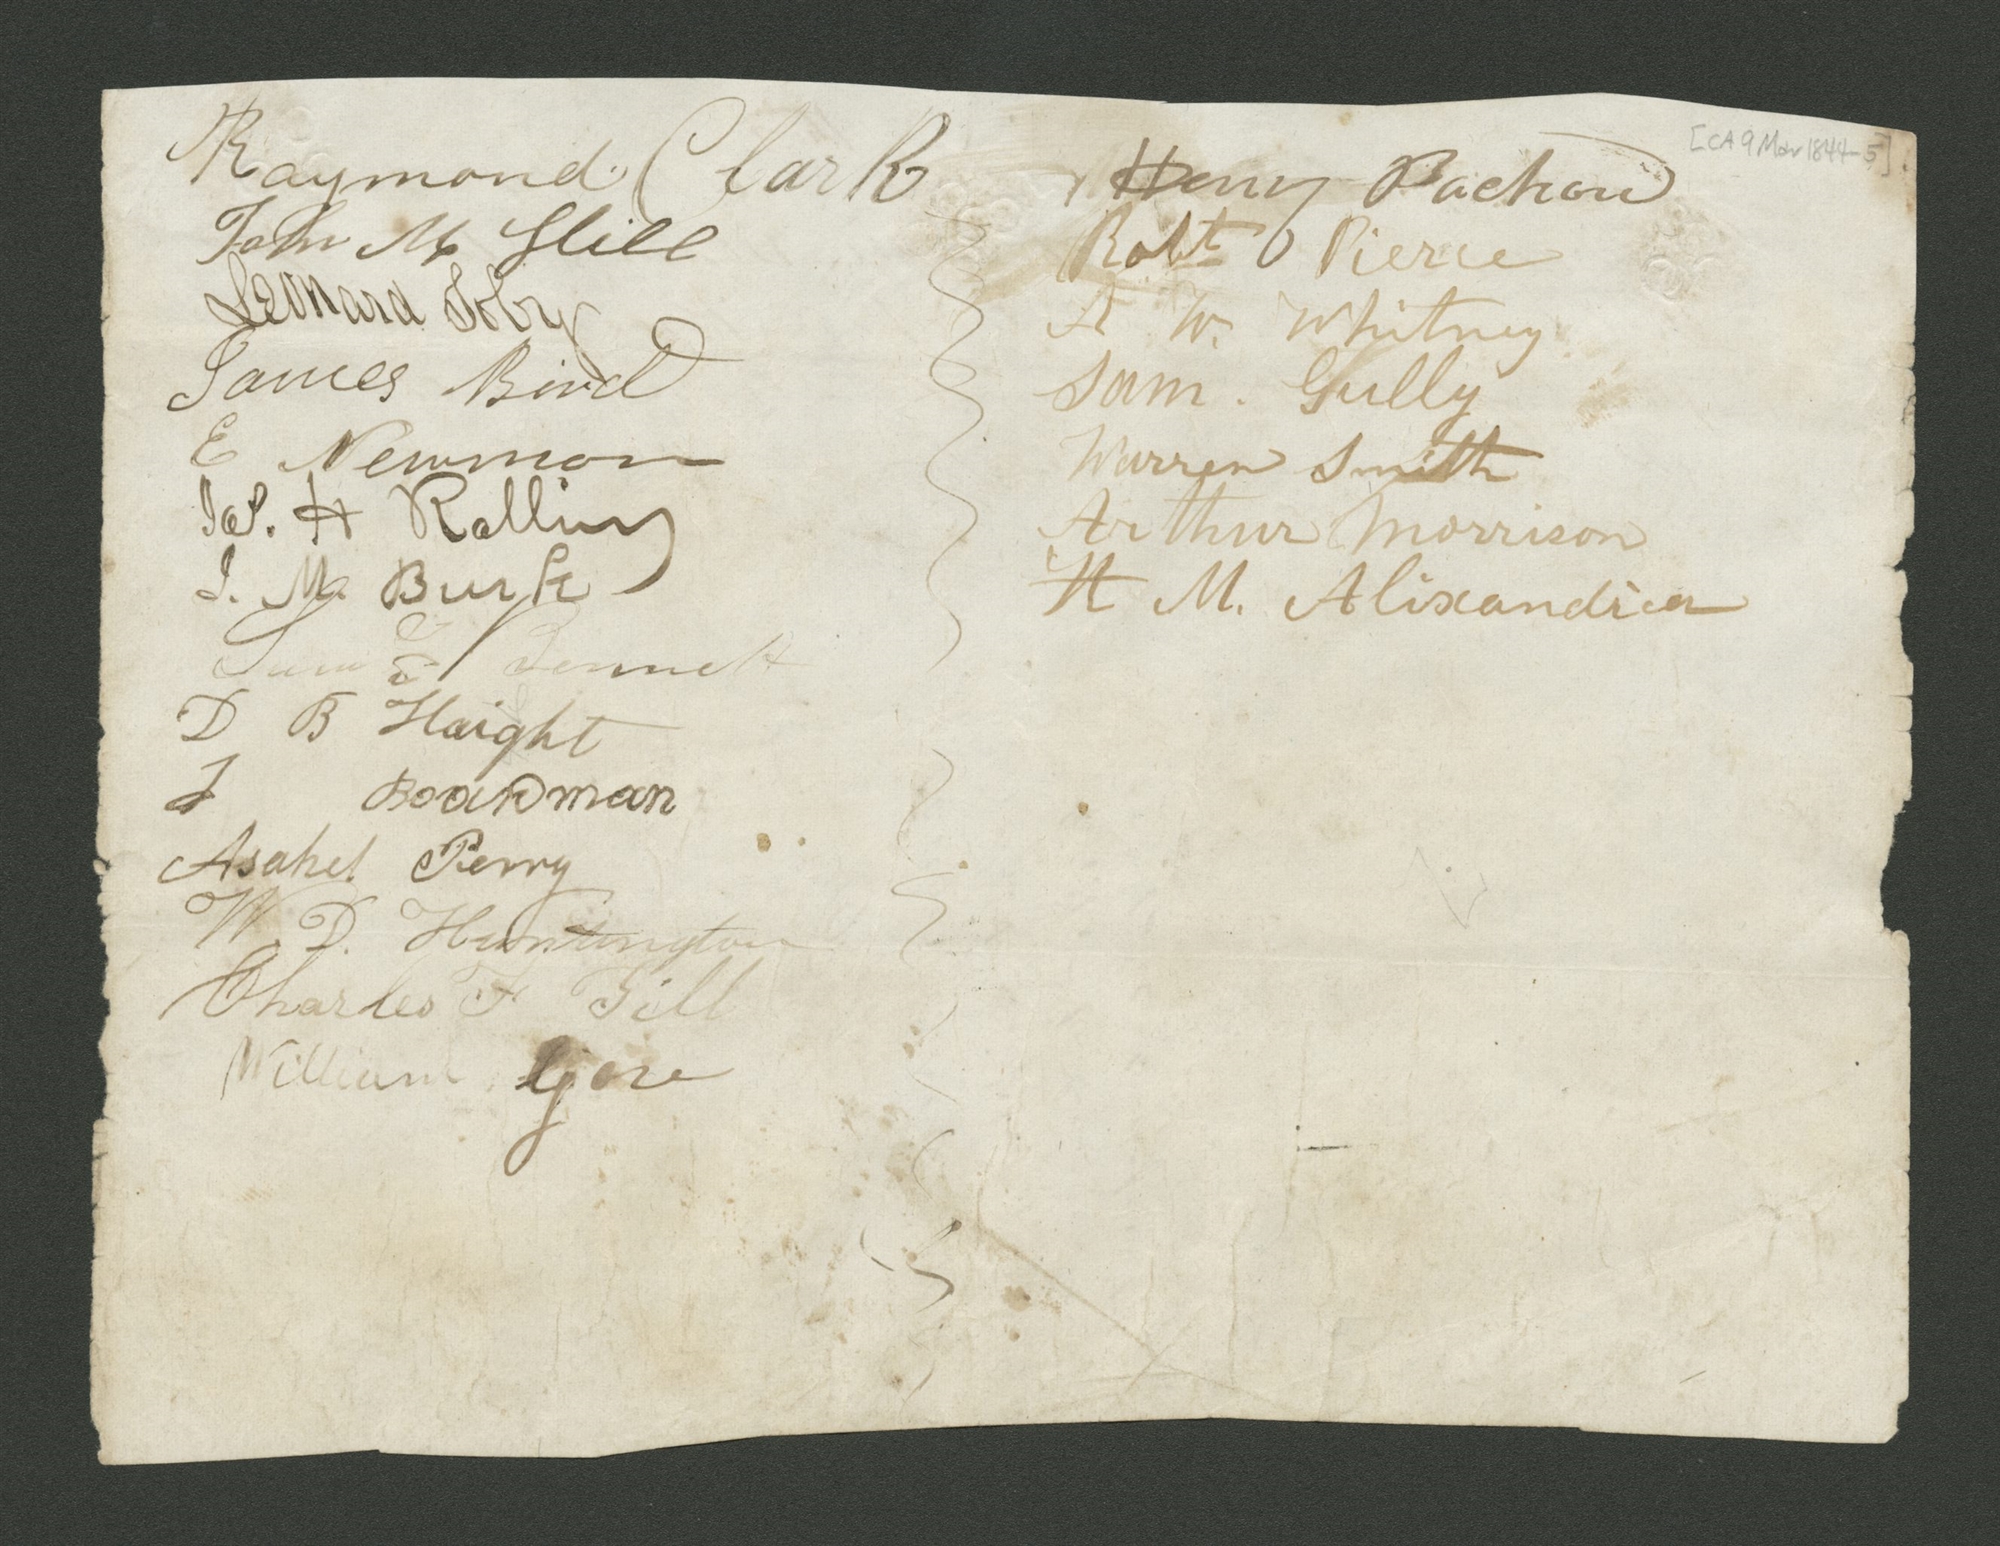 [CA 9 Mar 1844-5]
Raymond Clark
John M Gill
Leonard Soby
James Bird
E Newman
Jas. H Rollins
J. M. Burk
Sam G Bennett
D B Haight
J Boardman
Asahel Perry
W. D. Huntington
Charles F Gill
William Gore
Henry
Robt Pierce
A W. Whitney
Sam. Gully
Warren Smith
Arthur Morrison
H M. Alixander